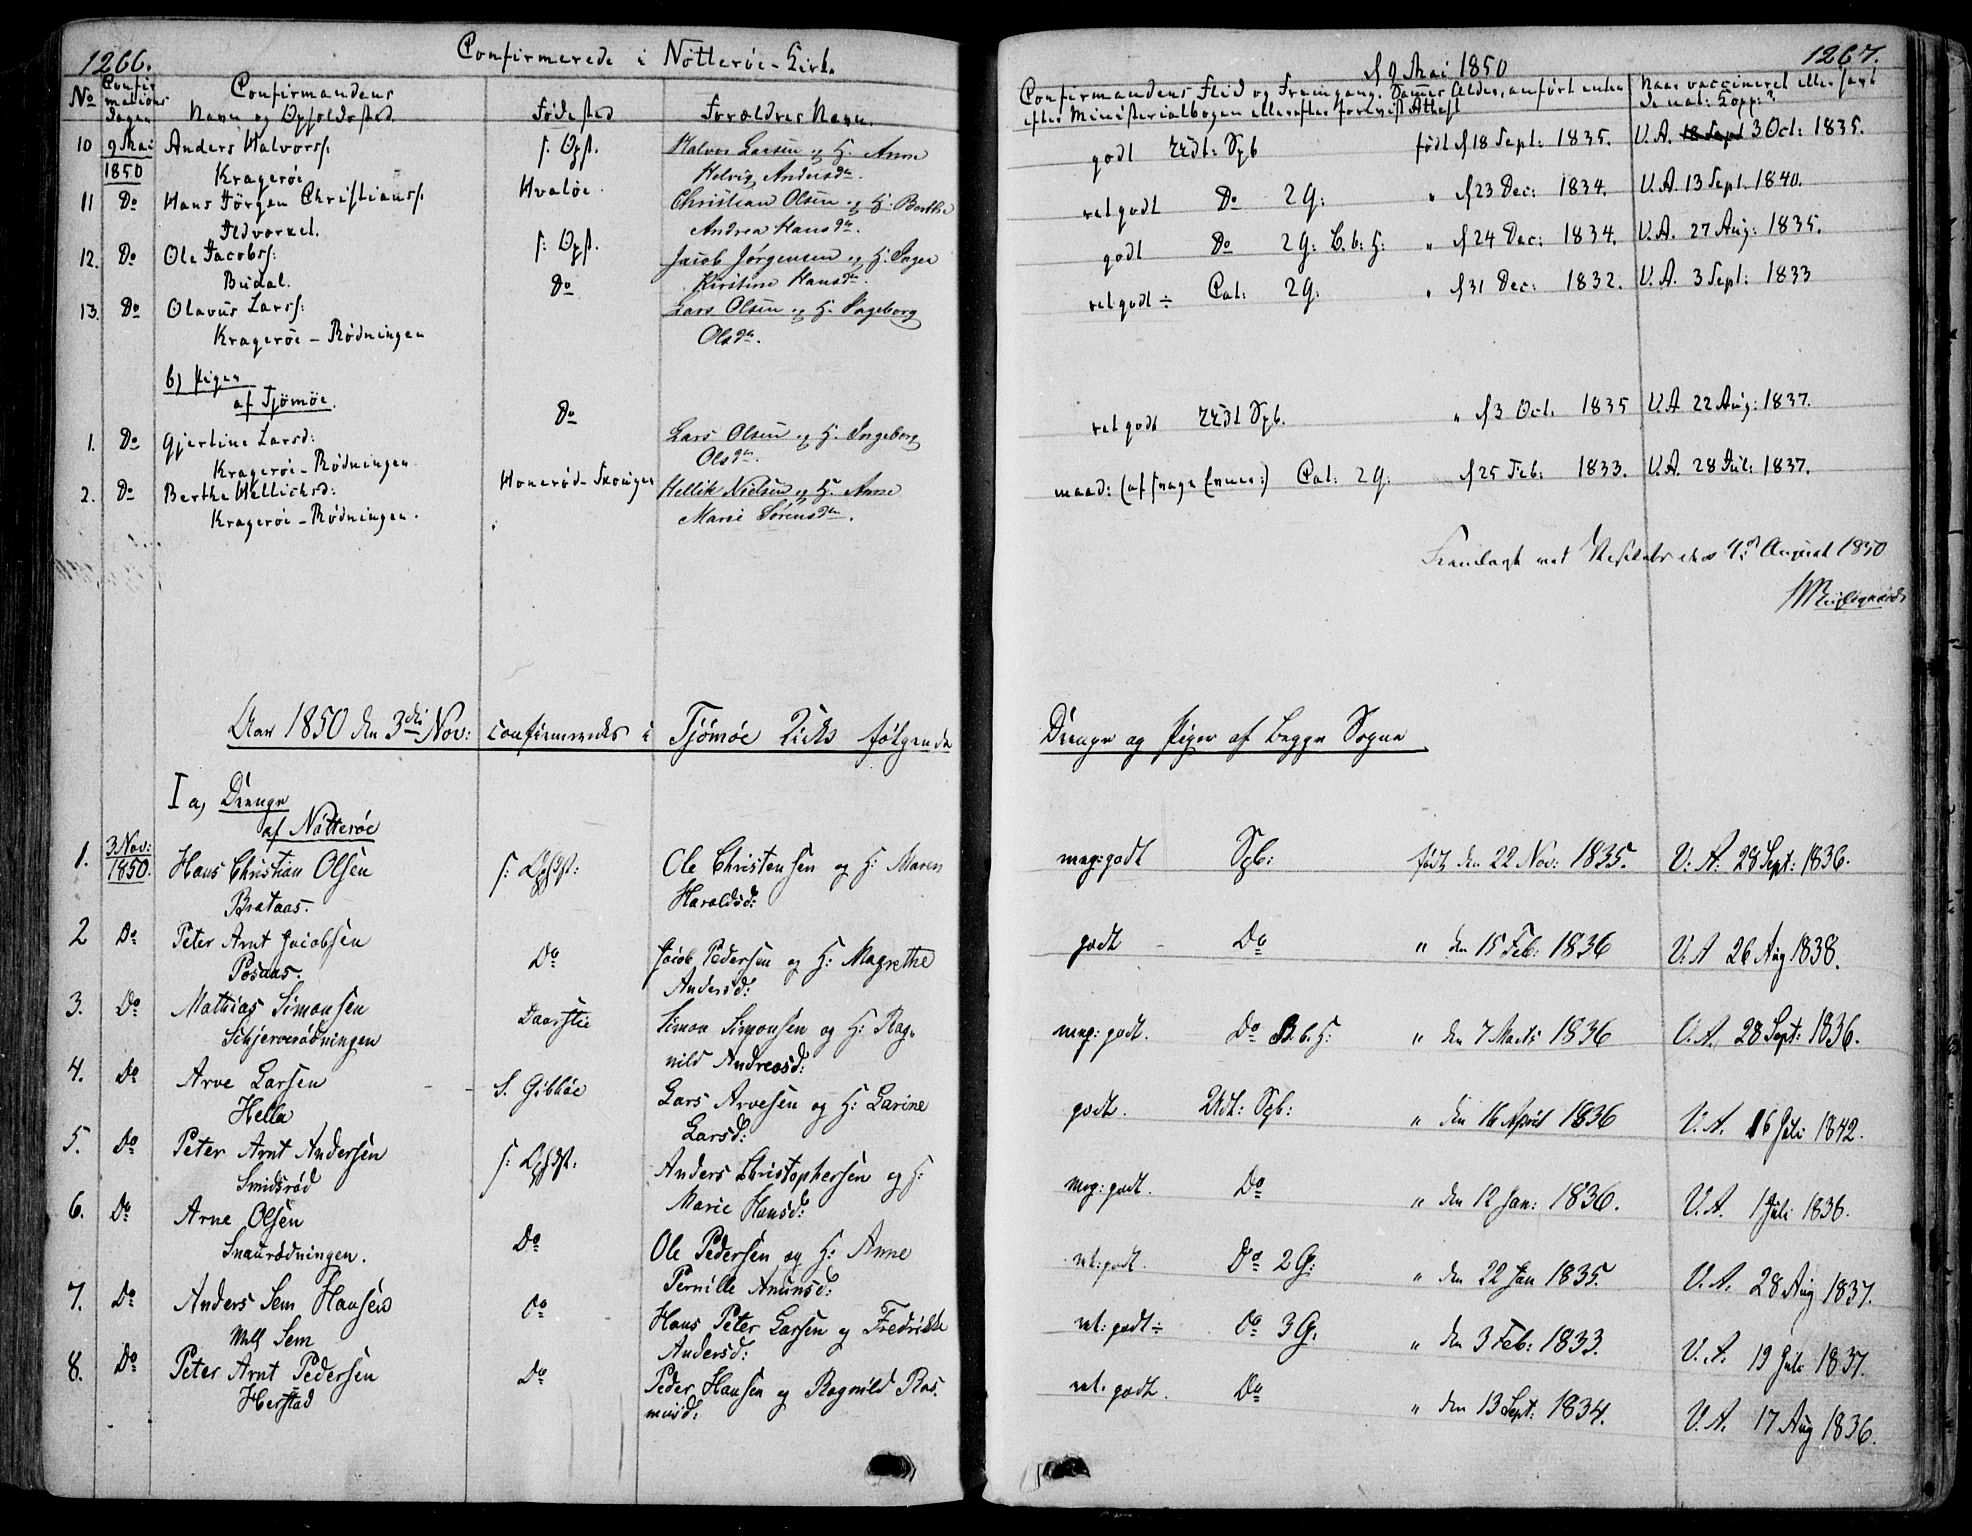 1266.
Confirmerede i Nötteröe-Kirke
No
Confirmations Dagen
Confirmandens
Navn og Opholdssted.
Födested
Forældres Navn.
10 9 Mai 1850 Anders Halvorss:
Kragerøe
s: Opst.
Halvor Larsen og H. Anne
Helvig Andersdr.
11 Do Hans Jörgen Christianss:
Hvalöe.
Christian Olsen og H. Berthe
Andrea Hansdr.
12. Do Ole Jacobss:
Budal.
s: Opst.
Jacob Jörgensen og H. Inger
Kirstine Hansdr.
13. Do Olavus Larss:
Kragerøe - Rødningen
Do
Lars Olsen og H. Ingeborg
Olsdr.
b) Piger
af Tjömöe.
1. Do Gjertine Larsd:
Kragerøe - Rødningen
Do
Lars Olsen og H. Ingeborg
Olsdr.
2. Do Berthe Hellichsd:
Kragerøe - Rødningen.
Hanerød - Skouger
Hellik Nielsen og H. Anne
Marie Sörensdr.
Aar 1850 den 3die Nov: confirmeredes i Tjömöe Kirke følgende
I a, Drenge
af Nötteröe
1. 3 Nov: 1850. Hans Christian Olsen
Brataas.
s: Opst:
Ole Christensen og H: Maren
Haraldsd:
2 Do Peter Arnt Jacobsen
Do
Jacob Pedersen og H: Magrethe
Andersd:
3. Do Mathias Simonsen
Schjerverødningen
Simon Simonsen og H: Rag-
nild Andreasd:
4. Do Arve Larsen
Hella
Lars Arvesen og H: Larine
Larsd:
5. Do Peter Arnt Andersen
Smidsrød
s: Opst:
Anders Christophersen og H:
Marie Hansd:
6. Do Arne Olsen
Snaurødningen.
Do
Ole Pedersen og H: Anne
Pernille Anunsd:
7. Do Anders Sem Hansen
Sem
Do
Hans Peter Larsen og Fredrikke
Andersd:
8. Do Peter Arnt Pedersen
Herstad
Do
Peder Hansen og Ragnild Ras-
musd:
d 9 Mai 1850
1267.
Confirmandens Flid og Fremgang. Sammes Alder, anført enten
efter Ministerialbogen eller efter forevist Attest
Naar vaccineret eller havt
de nat: Kopp:?
godt Udt: Spb født d 18 Sept: 1835. V.A. 18 Sept 3 Oct: 1835.
retgodt Do 2 G: " d 23 Dec: 1834. V.A. 13 Sept. 1840.
godt Do 2 G: B. b: H: " d 24 Dec: 1834. V.A. 27 Aug: 1835.
retgodt ÷ Cat: 2 G: " d 31 Dec: 1832. V.A. 3 Sept: 1833
retgodt Udt Spb. " d 3 Oct. 1835 V.A 22 Aug: 1837.
maad: Cat: 2 G: d 25 Feb: 1833. V.A. 28 Jul: 1837.
August 1850
meg: godt Spb: født den 22 Nov: 1835. V: A: 28 Sept: 1836.
godt - Do " den 15 Feb: 1836 V.A 26 Aug 1838.
meg: godt. Do B. b. H: " den 7 Marts 1836 V. A. 28 Sept: 1836.
godt. Udt: Spb: " den 16 April 1836 V. A. 16 Juli 1842.
meg: godt. Do " den 12 Jan: 1836. V. A. 1 Juli 1836.
ret: godt. Do 2 G: " den 22 Jan 1835. V. A. 28 Aug 1837.
ret: godt ÷ Do 3 G: " den 3 Feb: 1833. V. A. 19 Juli 1837.
ret. godt. Do " den 13 Sept: 1834. V. A. 17 Aug 1836.
Drenge og Piger af Begge Sogne